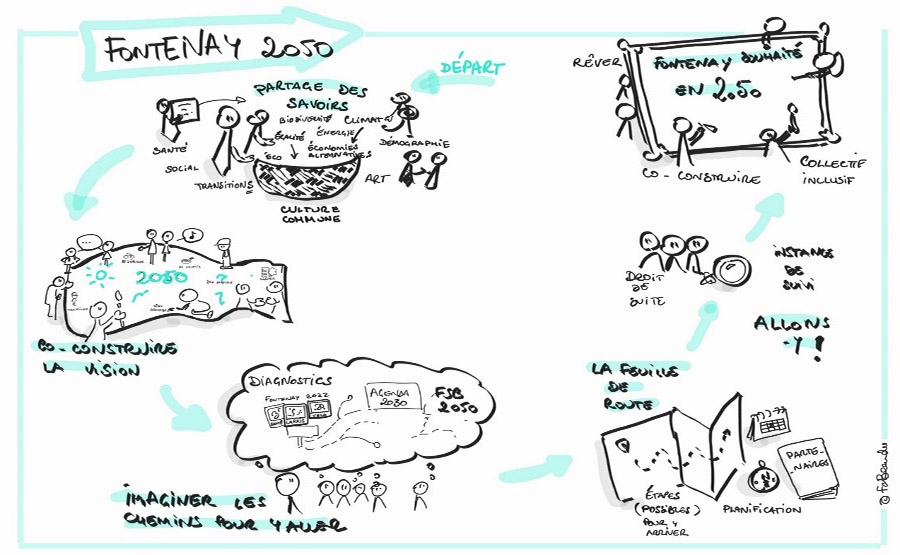 FONTENAY 2050
DÉPART
PARTAGE DES
SAVOIRS
BIODIVERSITÉ
CLIMAT
ÉGALITÉ
ÉNERGIE
ÉCO
ÉCONOMIES
ALTERNATIVES
DÉMOGRAPHIE
SANTÉ
SOCIAL
TRANSITIONS
ART
CULTURE
COMMUNE
2050
?
?
CO-CONSTRUIRE
LA VISION
DIAGNOSTICS
FONTENAY 2022
AGENDA
2030
FSB
2050
IMAGINER LES
CHEMINS POUR Y ALLER
LA FEUILLE
DE
ROUTE
ÉTAPES
(POSSIBLES)
POUR Y
ARRIVER
PLANIFICATION
PARTE-
NAIRES
DROIT
DE
SUITE
INSTANCE
DE
SUIVI
ALLONS
-Y !
RÊVER
FONTENAY SOUHAITÉ
EN 2050
CO-CONSTRUIRE
COLLECTIF
INCLUSIF